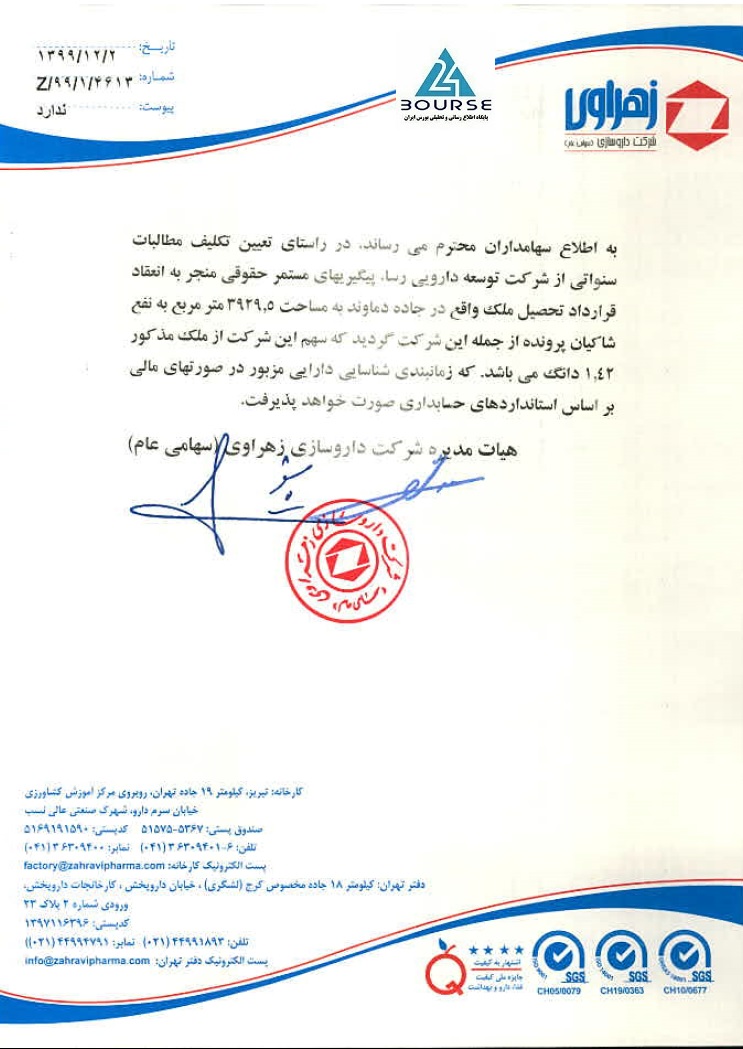 تاریخ: ۱۳۹۹/۱۲/۲
شماره: Z/۹۹/۱/۴۶۱۳
پیوست: ندارد
BOURSE 24
پایگاه اطلاع رسانی و تحلیلی بورس ایران
زهراوی
شرکت داروسازی (سهامی عام)
به اطلاع سهامداران محترم می رساند، در راستای تعیین تکلیف مطالبات
سنواتی از شرکت توسعه دارویی رسا، پیگیریهای مستمر حقوقی منجر به انعقاد
قرارداد تحصیل ملک واقع در جاده دماوند به مساحت ۳۹۲۹,۵ متر مربع به نفع
شاکیان پرونده از جمله این شرکت گردید که سهم این شرکت از ملک مذکور
۱,٤۲ دانگ می باشد. که زمانبندی شناسایی دارایی مزبور در صورتهای مالی
بر اساس استانداردهای حسابداری صورت خواهد پذیرفت.
هیات مدیره شرکت داروسازی زهراوی (سهامی عام)
کارخانه: تبریز، کیلومتر ۱۹ جاده تهران، روبروی مرکز آموزش کشاورزی
خیابان سرم دارو، شهرک صنعتی عالی نسب
صندوق پستی: ۵۳۶۷-۵۱۵۷۵ کدپستی: ۵۱۶۹۱۹۱۵۹۰
تلفن: ۶-۳۶۳۰۹۴۰۱ (۰۴۱) نمابر: ۳۶۳۰۹۴۰۰ (۰۴۱)
پست الکترونیک کارخانه: factory@zahravipharma.com
دفتر تهران: کیلومتر ۱۸ جاده مخصوص کرج (لشگری) ، خیابان داروپخش ، کارخانجات داروپخش،
ورودی شماره ۲ پلاک ۲۳
کدپستی: ۱۳۹۷۱۱۶۳۹۶
تلفن: ۴۴۹۹۱۸۹۳ (۰۲۱) نمابر: ۴۴۹۹۴۷۹۱ (۰۲۱))
پست الکترونیک دفتر تهران: info@zahravipharma.com
اشتهار به کیفیت
جایزه ملی کیفیت
غذا، دارو و بهداشت
SGS SGS SGS
CH05/0079 CH19/0363 CH10/0677